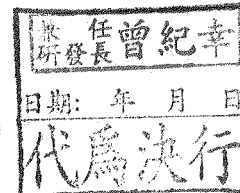 兼任
研發長
曾紀幸
日期: 年 月 日
代為決行